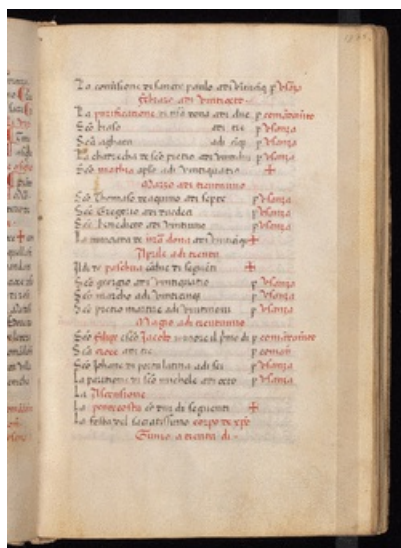 La conversione di sancto paulo adi vinticinq p vsanza
Febraro adi vintiocto
La purificatione di nrã dona adi due p comãdamẽto
Scõ biaso adi tre p vsanza
Scã aghata adi cinq p vsanza
La chatreda di scõ pietro adi vintidui p vsanza
Scõ mathia aplo adi vintiquatro +
Marzo adi trentuno
Scõ Thomaso daquino adi septe p vsanza
Scõ Gregorio adi dodeci p vsanza
Scõ benedicto adi vintiuno p vsanza
La nuntiata di nrã dona adi vinticinq +
Aprile adi trenta
Il di de paschua cũ dui seguẽti +
Scõ georgio adi vintiquatro p vsanza
Scõ marcho adi vinticinq p vsanza
Scõ pietro martire adi vintinoui p vsanza
Magio adi trentuno
Scõ filipo e scõ Jacobo il primo di p comãdamẽto
Scã croce adi tre p comãn
Scõ Johane di porta latina adi sei p vsanza
La paritione di scõ michele adi octo p vsanza
La Ascensione
La pentecosta cõ dui di seguenti +
La festa del sacratissimo corpo di xpõ
Giunio a trenta di